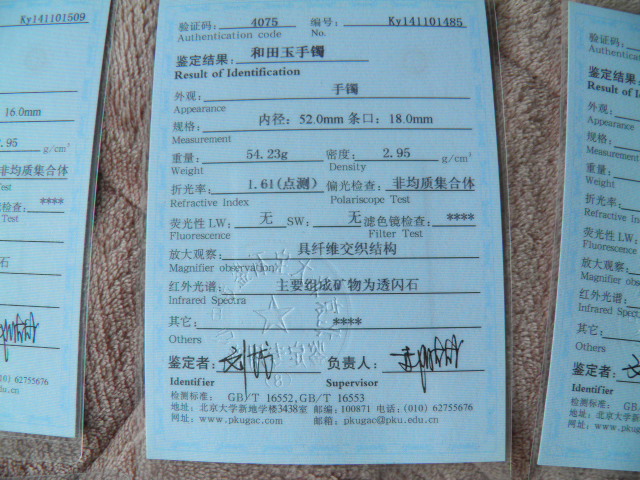 Ky141101509
16.0mm
2.95 g/cm³
非均质集合体
Test
****
Test
石
62755676
du.cn
验证码: 4075 编号: Ky141101485
Authentication code No.
鉴定结果: 和田玉手镯
Result of Identification
外观: 手镯
Appearance
规格: 内径: 52.0mm 条口: 18.0mm
Measurement
重量: 54.23g 密度: 2.95 g/cm³
Weight Density
折光率: 1.61(点测) 偏光检查: 非均质集合体
Refractive Index Polariscope Test
荧光性 LW: 无 SW: 无 滤色镜检查: ****
Fluorescence Filter Test
放大观察: 具纤维交织结构
Magnifier observation
红外光谱: 主要组成矿物为透闪石
Infrared Spectra
其它: ****
Others
鉴定者: 负责人:
Identifier Supervisor
检测标准: GB/T 16552,GB/T 16553
地址: 北京大学新地学楼3438室 邮编:100871 电话:(010) 62755676
网址: www.pkugac.com 邮箱: pkugac@pku.edu.cn
验证码:
Authenticat
鉴定结果:
Result of I
外观:
Appearance
规格:
Measurement
重量:
Weight
折光率:
Refractive In
荧光性 LW:
Fluorescence
放大观察:
Magnifier
红外光谱:
Infrared Spect
其它:
Others
鉴定者:
Identifier
检测标准: GB
地址: 北京大学新
网址: www.pku